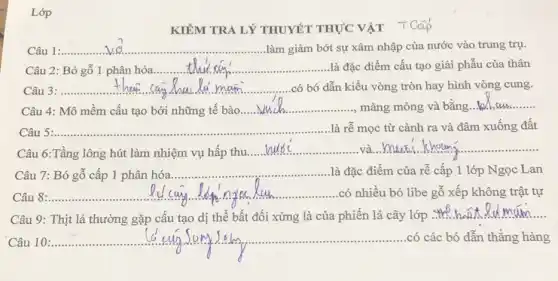 Lớp
KIỂM TRA LÝ THUYẾT THỰC VẬT T Cấp
Câu 1:..........vỏ..........làm giảm bớt sự xâm nhập của nước vào trung trụ.
Câu 2: Bó gỗ 1 phân hóa..........là đặc điểm cấu tạo giải phẫu của thân
Câu 3:..........thân cây hai lá mầm..........có bó dẫn kiểu vòng tròn hay hình vòng cung.
Câu 4: Mô mềm cấu tạo bởi những tế bào..........vách.........., màng mỏng và bằng..........
Câu 5:..........là rễ mọc từ cành ra và đâm xuống đất
Câu 6:Tầng lông hút làm nhiệm vụ hấp thu..........nước..........và..........muối khoáng..........
Câu 7: Bó gỗ cấp 1 phân hóa..........là đặc điểm của rễ cấp 1 lớp Ngọc Lan
Câu 8:..........lớp ngọc lan..........có nhiều bó libe gỗ xếp không trật tự
Câu 9: Thịt lá thường gặp cấu tạo dị thể bất đối xứng là của phiến lá cây lớp..........
Câu 10:..........có các bó dẫn thẳng hàng